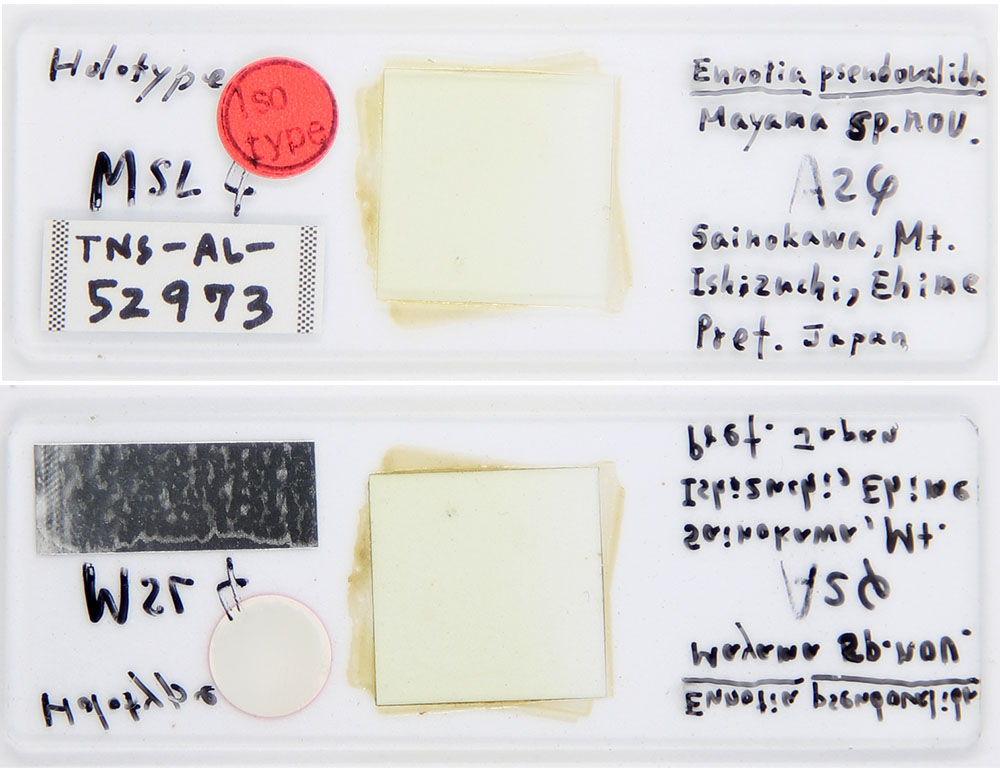 Holotype
Iso
type
MSL 4
TNS-AL-
52973
Eunotia pseudovalida
Mayama sp.nov.
A24
Sainokawa, Mt.
Ishizuchi, Ehime
Pref. Japan
Pref. Japan
Ishizuchi, Ehime
Sainokawa, Mt.
A24
Mayama sp.nov.
Eunotia pseudovalida
MSL 4
Holotype